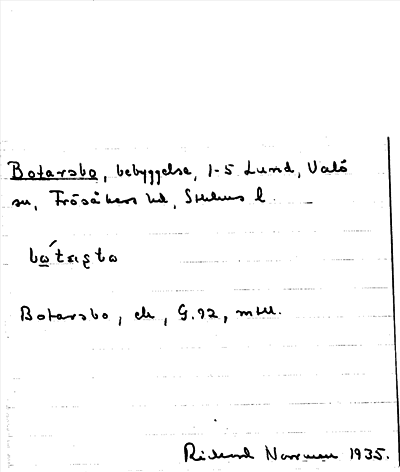 Botarsbo, bebyggelse, 1-5 Lund, Valö
sn, Frösåkers hd, Sthlms l.
Botarsbo, ek, G.92, mtll.
Rickard Norrman 1935.